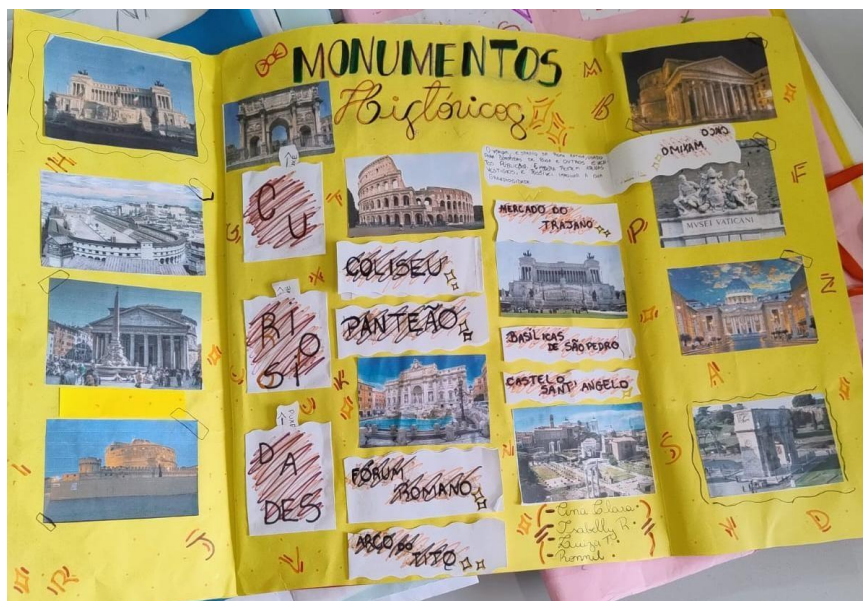 MONUMENTOS
Históricos
CU
RIO
SI
DA
DES
COLISEU
PANTEÃO
FÓRUM
ROMANO
ARCO DO
TITO
MERCADO DO
TRAJANO
BASÍLICAS
DE SÃO PEDRO
CASTELO
SANT' ANGELO
CIRCO
MÁXIMO
MVSEI VATICANI
- Ana Clara
- Isabelly R.
- Luiza P.
- Ronnil
H
M
B
F
P
Z
A
S
D
R
J
V
K
X
G
T